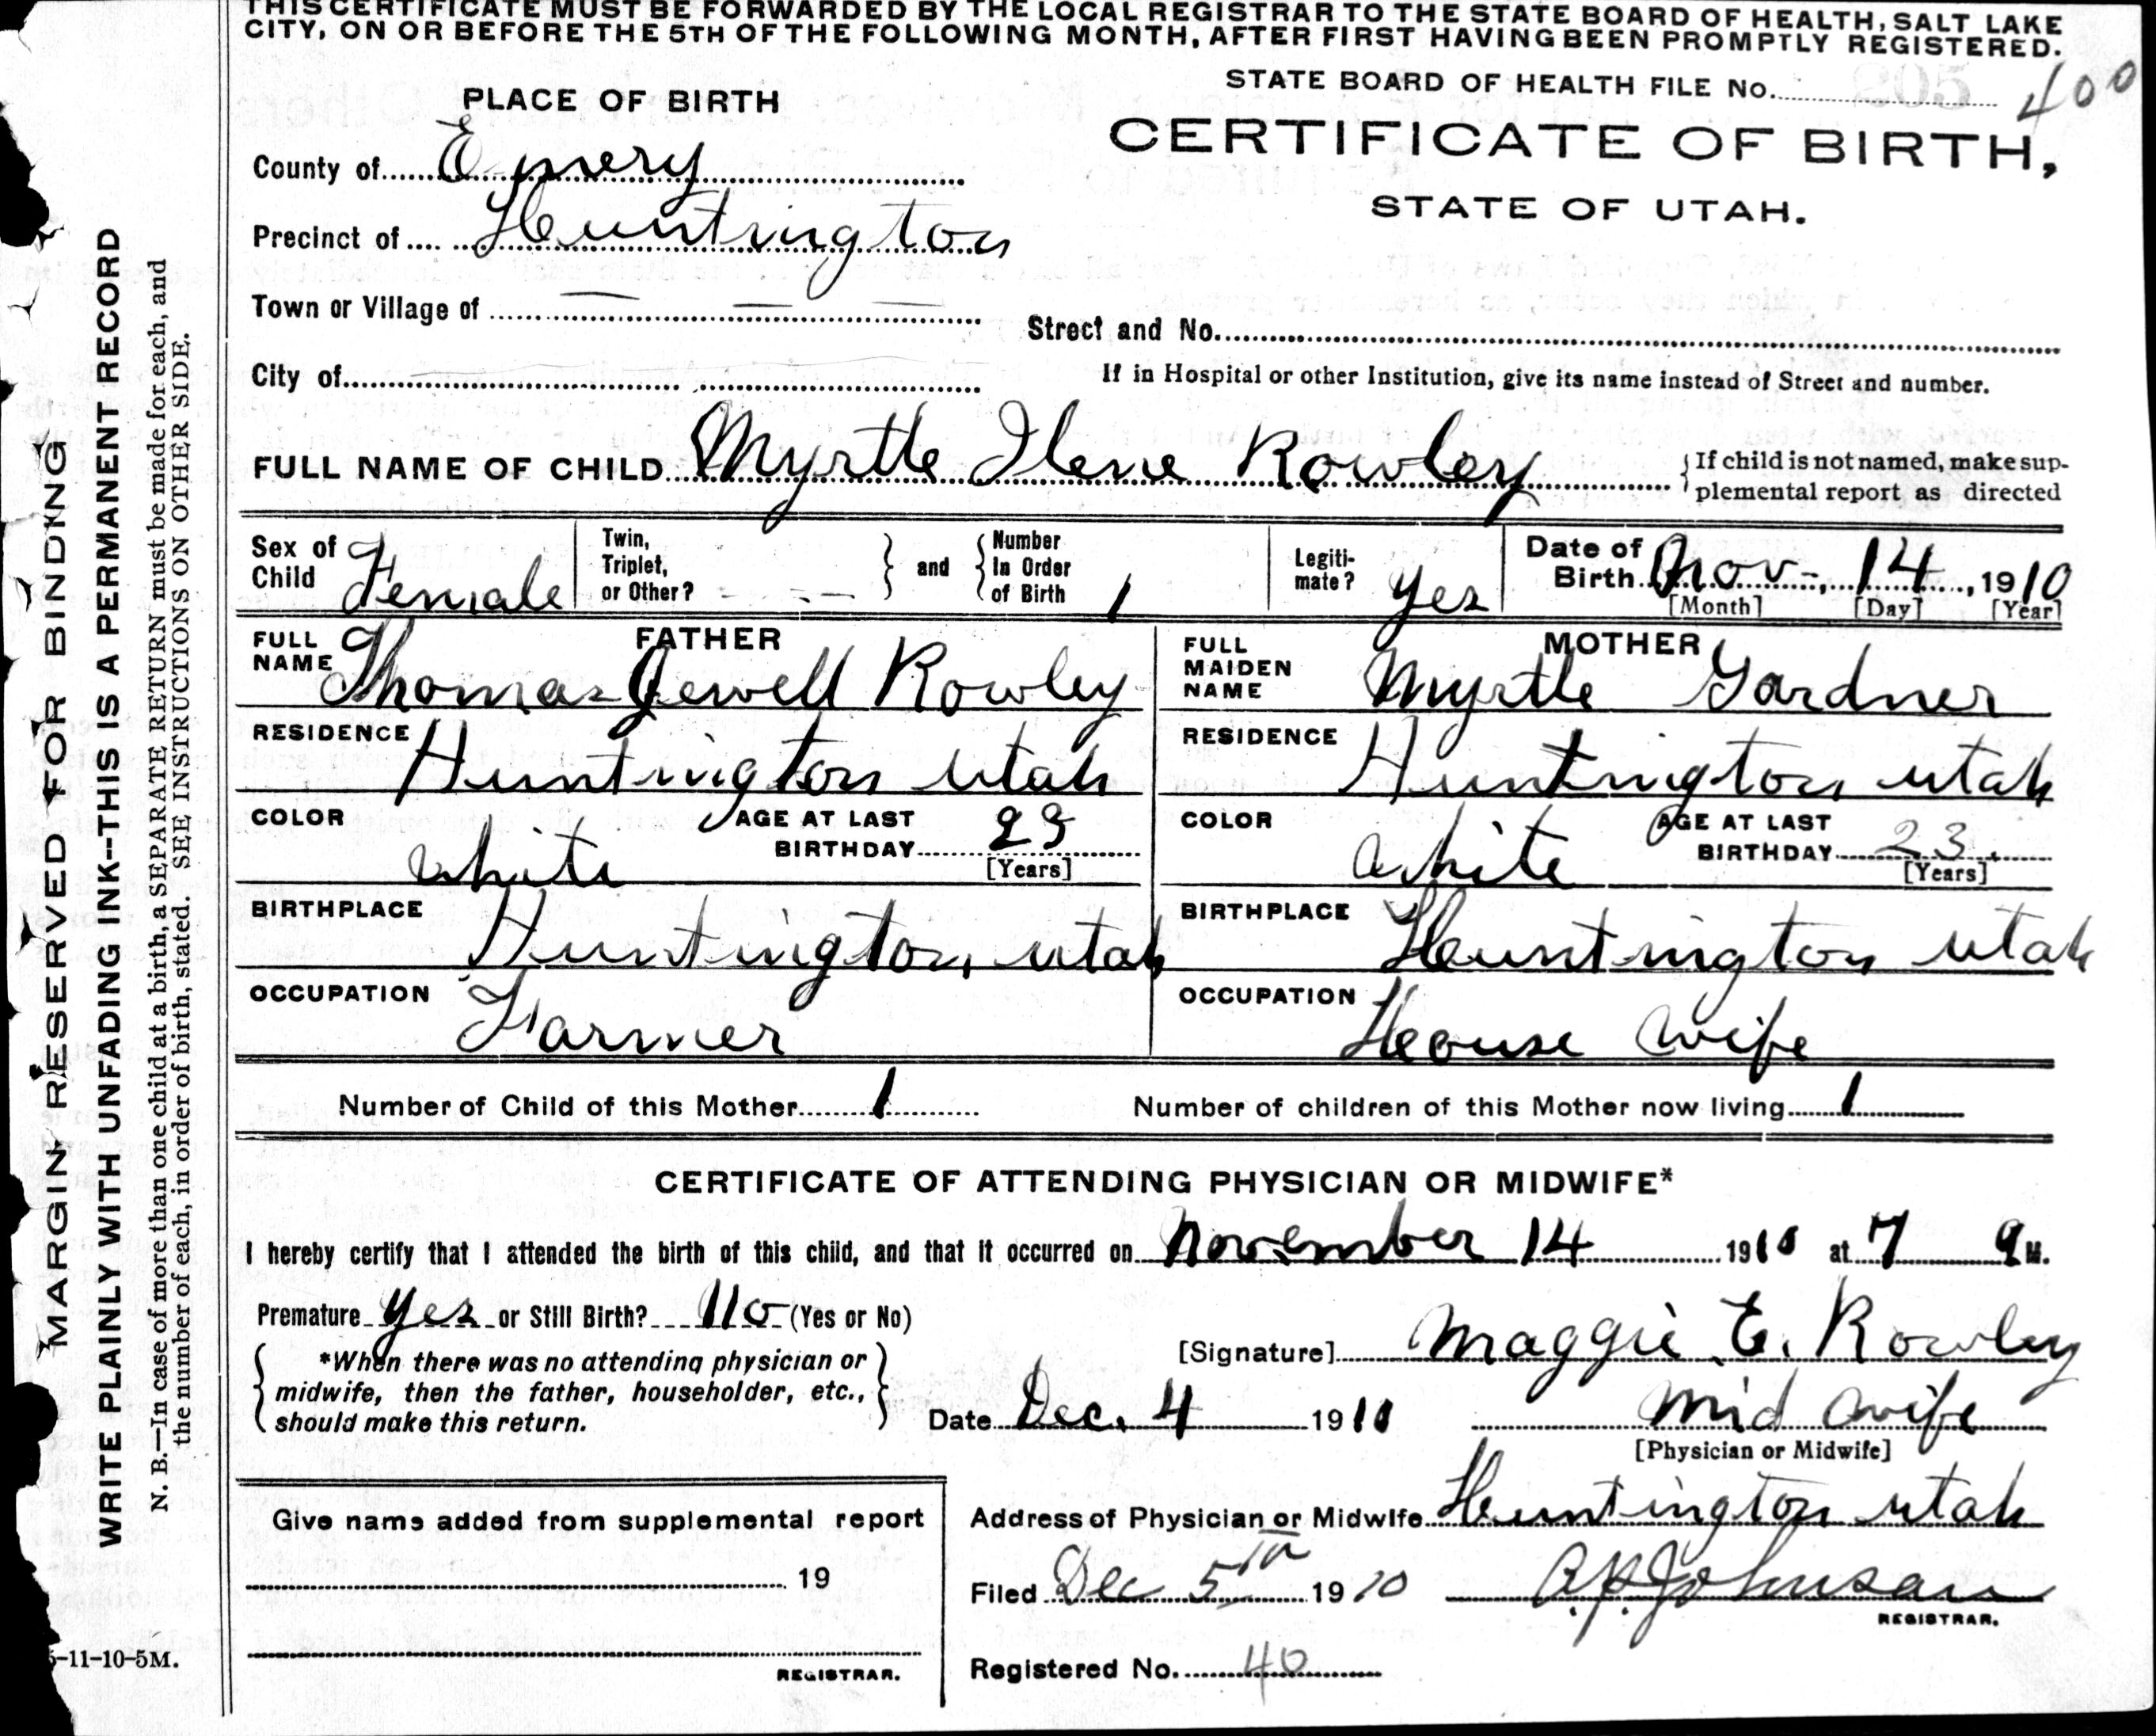 THIS CERTIFICATE MUST BE FORWARDED BY THE LOCAL REGISTRAR TO THE STATE BOARD OF HEALTH, SALT LAKE
CITY, ON OR BEFORE THE 5TH OF THE FOLLOWING MONTH, AFTER FIRST HAVING BEEN PROMPTLY REGISTERED.
STATE BOARD OF HEALTH FILE No. 205 400
PLACE OF BIRTH
CERTIFICATE OF BIRTH,
STATE OF UTAH.
County of Emery
Precinct of Huntington
Town or Village of — — —
Street and No.
City of
If in Hospital or other Institution, give its name instead of Street and number.
FULL NAME OF CHILD Myrtle Ilene Rowley { If child is not named, make sup-
plemental report as directed
Sex of Child Female
Twin, Triplet, or Other? - - - } and { Number In Order of Birth 1
Legiti-mate? Yes
Date of Birth Nov-, 14, 1910
[Month] [Day] [Year]
FATHER
FULL NAME Thomas Jewell Rowley
RESIDENCE Huntington Utah
COLOR white
AGE AT LAST BIRTHDAY 23 [Years]
BIRTHPLACE Huntington, Utah
OCCUPATION Farmer
MOTHER
FULL MAIDEN NAME Myrtle Gardner
RESIDENCE Huntington, Utah
COLOR White
AGE AT LAST BIRTHDAY 23 [Years]
BIRTHPLACE Huntington Utah
OCCUPATION House Wife
Number of Child of this Mother 1
Number of children of this Mother now living 1
CERTIFICATE OF ATTENDING PHYSICIAN OR MIDWIFE*
I hereby certify that I attended the birth of this child, and that it occurred on November 14 1910 at 7 a M.
Premature Yes or Still Birth? No (Yes or No)
*When there was no attending physician or
midwife, then the father, householder, etc.,
should make this return.
[Signature] Maggie E. Rowley
Date Dec. 4 1910
Mid Wife
[Physician or Midwife]
Give name added from supplemental report
19
REGISTRAR.
Address of Physician or Midwife Huntington Utah
Filed Dec 5th 1910
Johnson
REGISTRAR.
Registered No. 40
5-11-10-5M.
MARGIN RESERVED FOR BINDING
WRITE PLAINLY WITH UNFADING INK--THIS IS A PERMANENT RECORD
N. B.—In case of more than one child at a birth, a SEPARATE RETURN must be made for each, and
the number of each, in order of birth, stated. SEE INSTRUCTIONS ON OTHER SIDE.